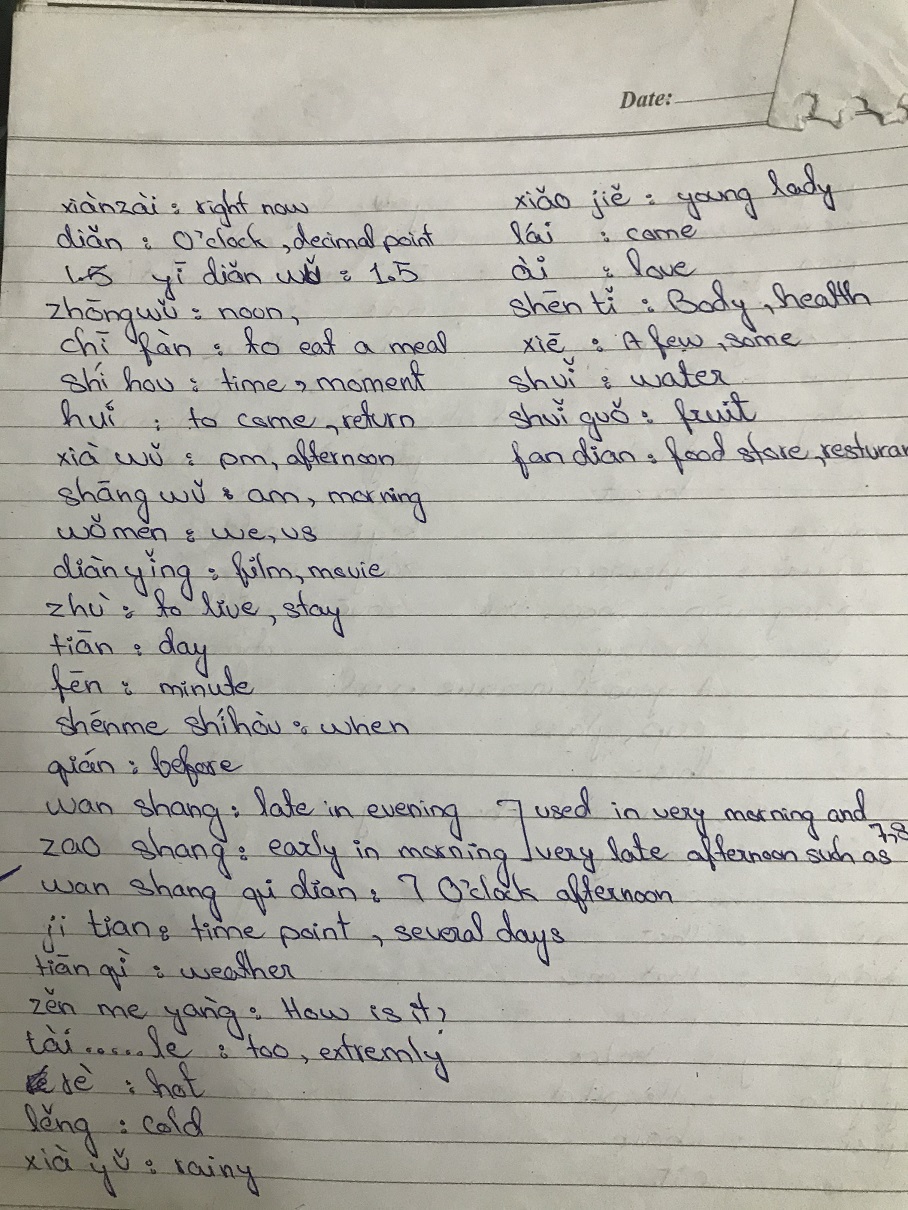 Date:
xiànzài : right now
diǎn : O'clock , decimal point
1.5 yī diǎn wǔ : 1.5
zhōngwǔ : noon,
chī fàn : to eat a meal
shí hou : time , moment
huí : to come , return
xià wǔ : pm, afternoon
shāng wǔ : am, morning
wǒmen : we, us
diàn yǐng : film, movie
zhù : to live, stay
tiān : day
fēn : minute
shénme shíhòu : when
qián : before
wan shang : late in evening
zao shang : early in morning
used in very morning and
very late afternoon such as 7,8
wan shang qi dian : 7 O'clock afternoon
ji tian : time point , several days
tiān qì : weather
zěn me yàng : How is it?
tài ..... le : too, extremly
rè : hot
lěng : cold
xià yǔ : rainy
xiǎo jiě : young lady
lái : come
ài : love
shēn tǐ : Body , health
xiē : A few , some
shuǐ : water
shuǐ guǒ : fruit
fan dian : food store , resturan